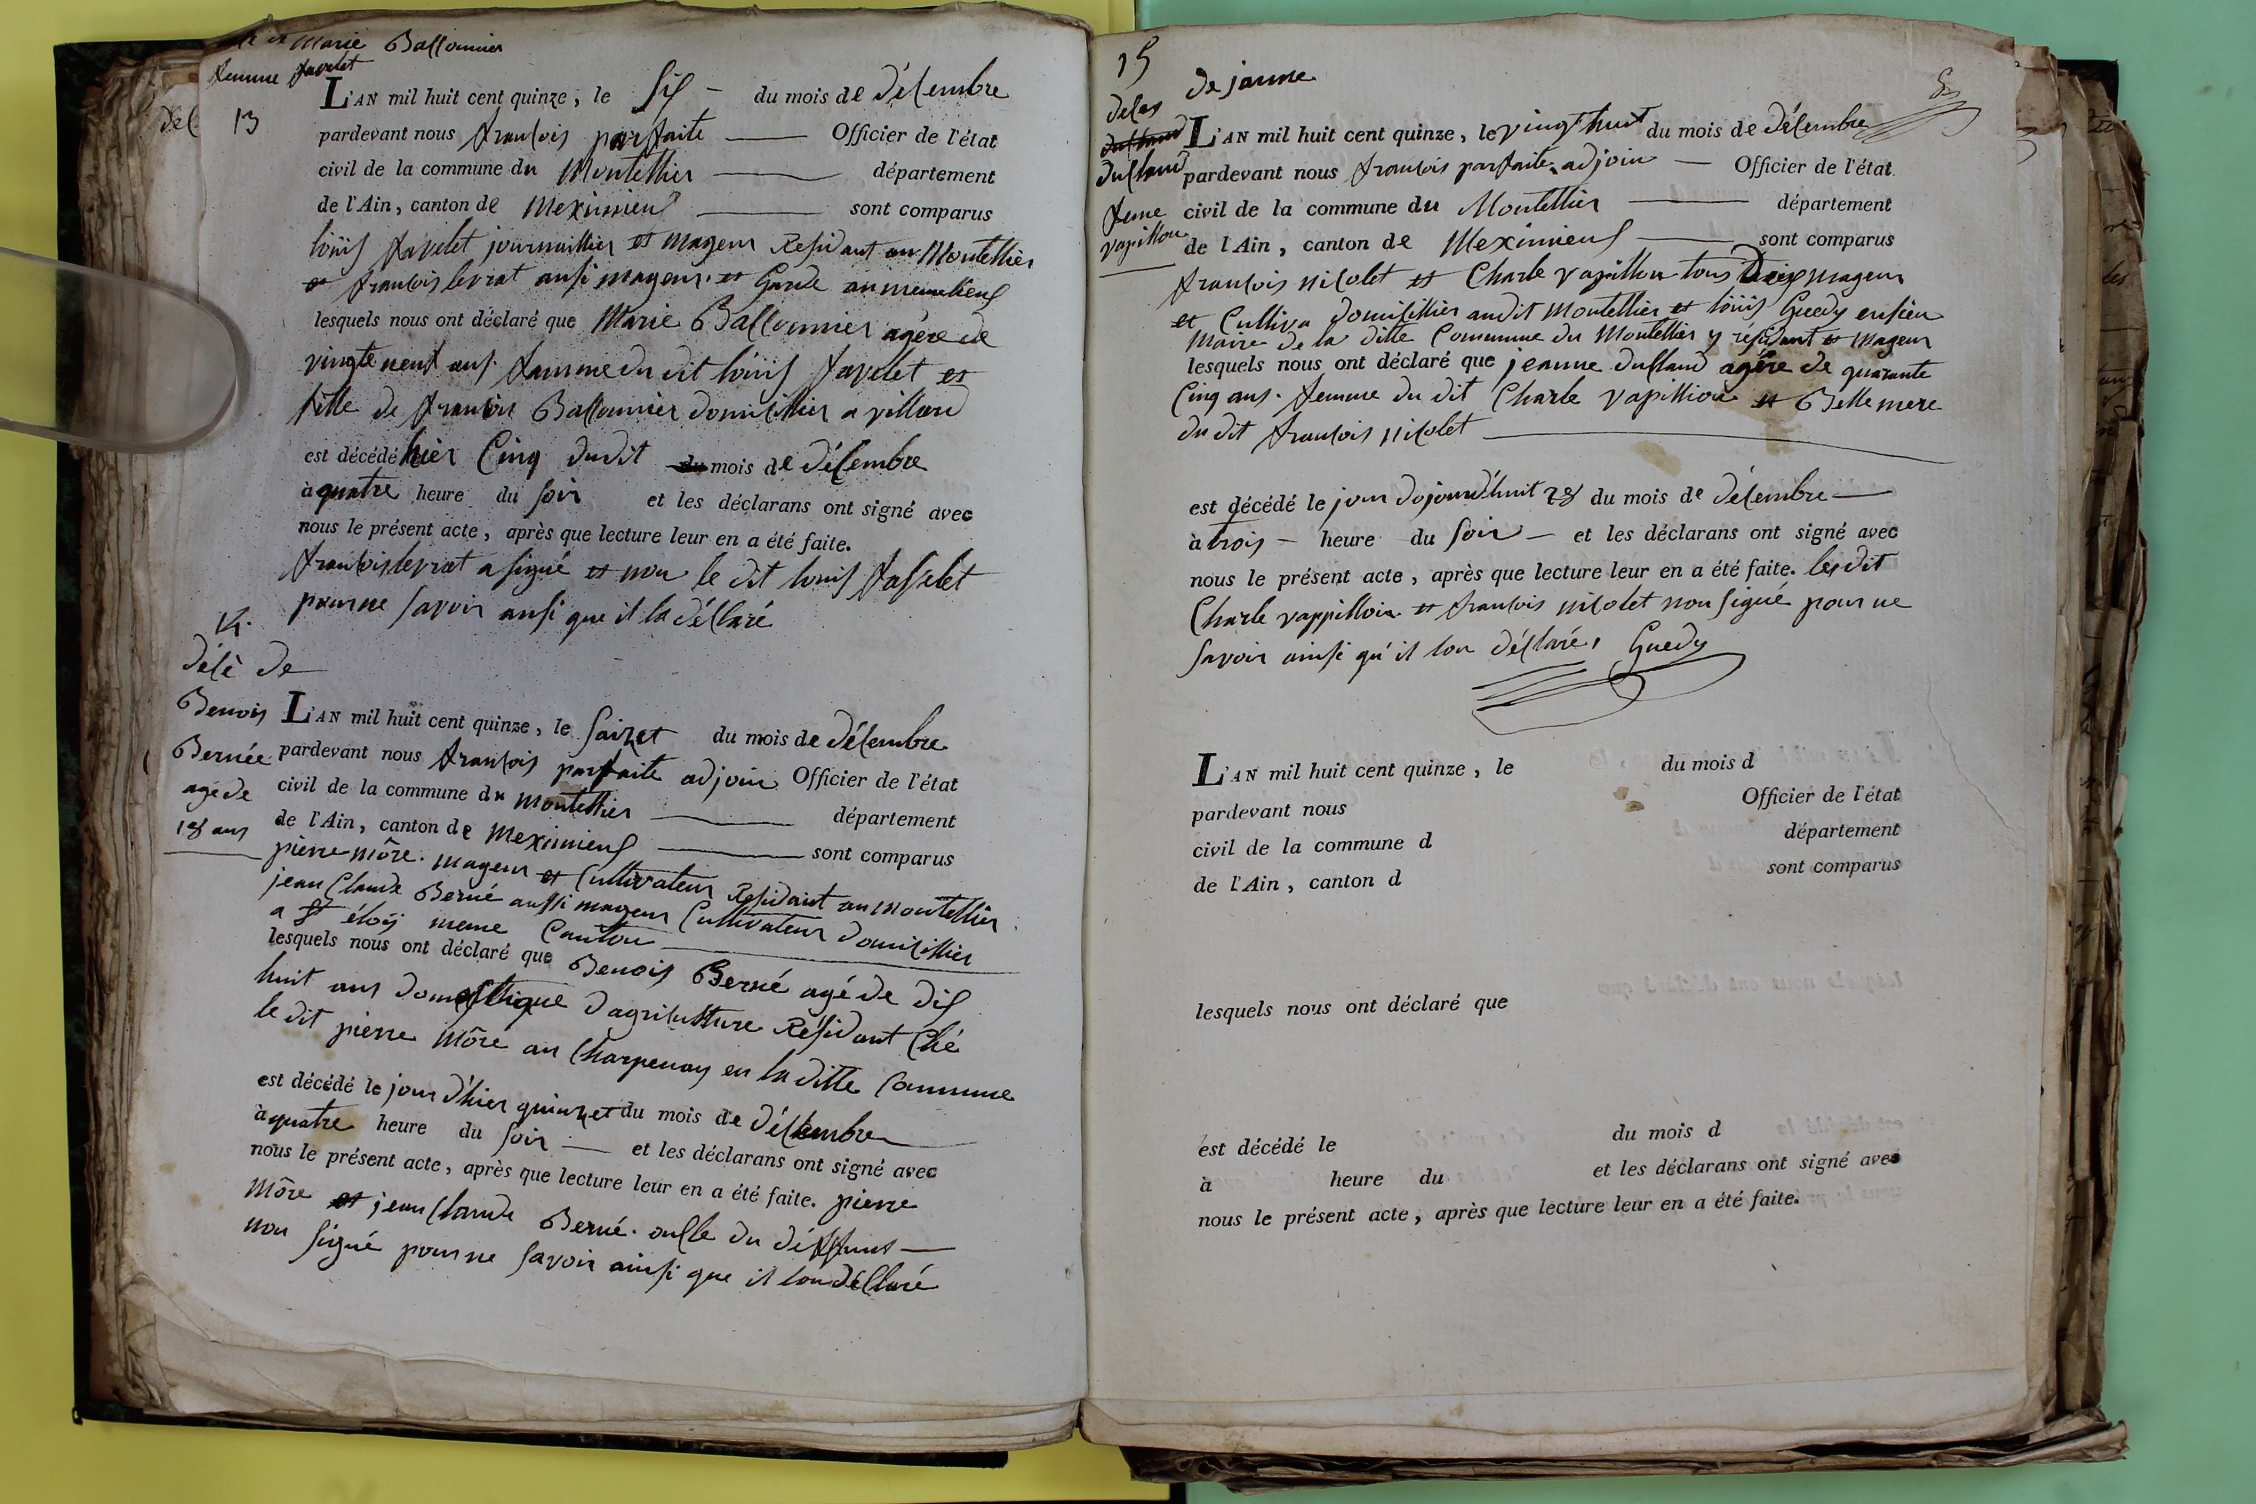 Marie Ballonnier
femme favelet
13
L'AN mil huit cent quinze, le six du mois de décembre
pardevant nous francois parfaite Officier de l'état
civil de la commune du Montellier département
de l'Ain, canton de Meximieux sont comparus
loüis favelet journaillier et mageur Residant au Montellier
et francois levrat ausi mageur et Garde au meme lieux
lesquels nous ont déclaré que Marie Ballonnier agéze de
vingte neuf ans. famme du dit loüis favelet et
fille de francois Ballonnier domicillier a villard
est décédé hier Cinq dudit mois de décembre
à quatre heure du soir et les déclarans ont signé avec
nous le présent acte, après que lecture leur en a été faite.
francois levrat a signé et non le dit louis fasselet
pour ne savoir ansi que il la déclaré
14.
décè de
Benois
Bernée
agé de
18 ans
L'AN mil huit cent quinze, le saizet du mois de décembre
pardevant nous francois parfaite adjoin Officier de l'état
civil de la commune du Montellier département
de l'Ain, canton de Meximieux sont comparus
pierre môre. mageur et Cultivateur Residant au Montellier
jean Claude Berné aussi mageur Cultivateur domicillier
a St éloy meme Canton
lesquels nous ont déclaré que Benois Berné agé de dis
huit ans domestique dagriculture Résidant Ché
le dit pierre Môre au Charpenay en la ditte Commune
est décédé le jour d'hier quinzet du mois de décembre
à quatre heure du soir et les déclarans ont signé avec
nous le présent acte, après que lecture leur en a été faite. pierre
Môre et jean Claude Berné. oncle du déffunt
non signé pour ne savoir ainsi que il lon déclaré
15
de janne
deces
dufland
femme
vapillon
L'AN mil huit cent quinze, le vingt huit du mois de décembre
pardevant nous francois parfaite adjoin Officier de l'état
civil de la commune du Montellier département
de l'Ain, canton de Meximieux sont comparus
francois nicolet et Charle vapillon tous Deix mageur
et Cultiva domicillier audit Montellier et loüis Guedy ensien
Maire de la ditte Commune du Montellier y résidant et Mageur
lesquels nous ont déclaré que jeanne dufland agéze de quarante
Cinq ans. femme du dit Charle vapillion et Belle mere
du dit francois nicolet
est décédé le jour dojourd'huit 28 du mois de décembre
à trois heure du soir et les déclarans ont signé avec
nous le présent acte, après que lecture leur en a été faite. les dit
Charle vappillion et francois nicolet non signé pour ne
savoir ainsi qu'il lon déclaré, Guedy
L'AN mil huit cent quinze, le du mois d
pardevant nous Officier de l'état
civil de la commune d département
de l'Ain, canton d sont comparus
lesquels nous ont déclaré que
est décédé le du mois d
à heure du et les déclarans ont signé avec
nous le présent acte, après que lecture leur en a été faite.